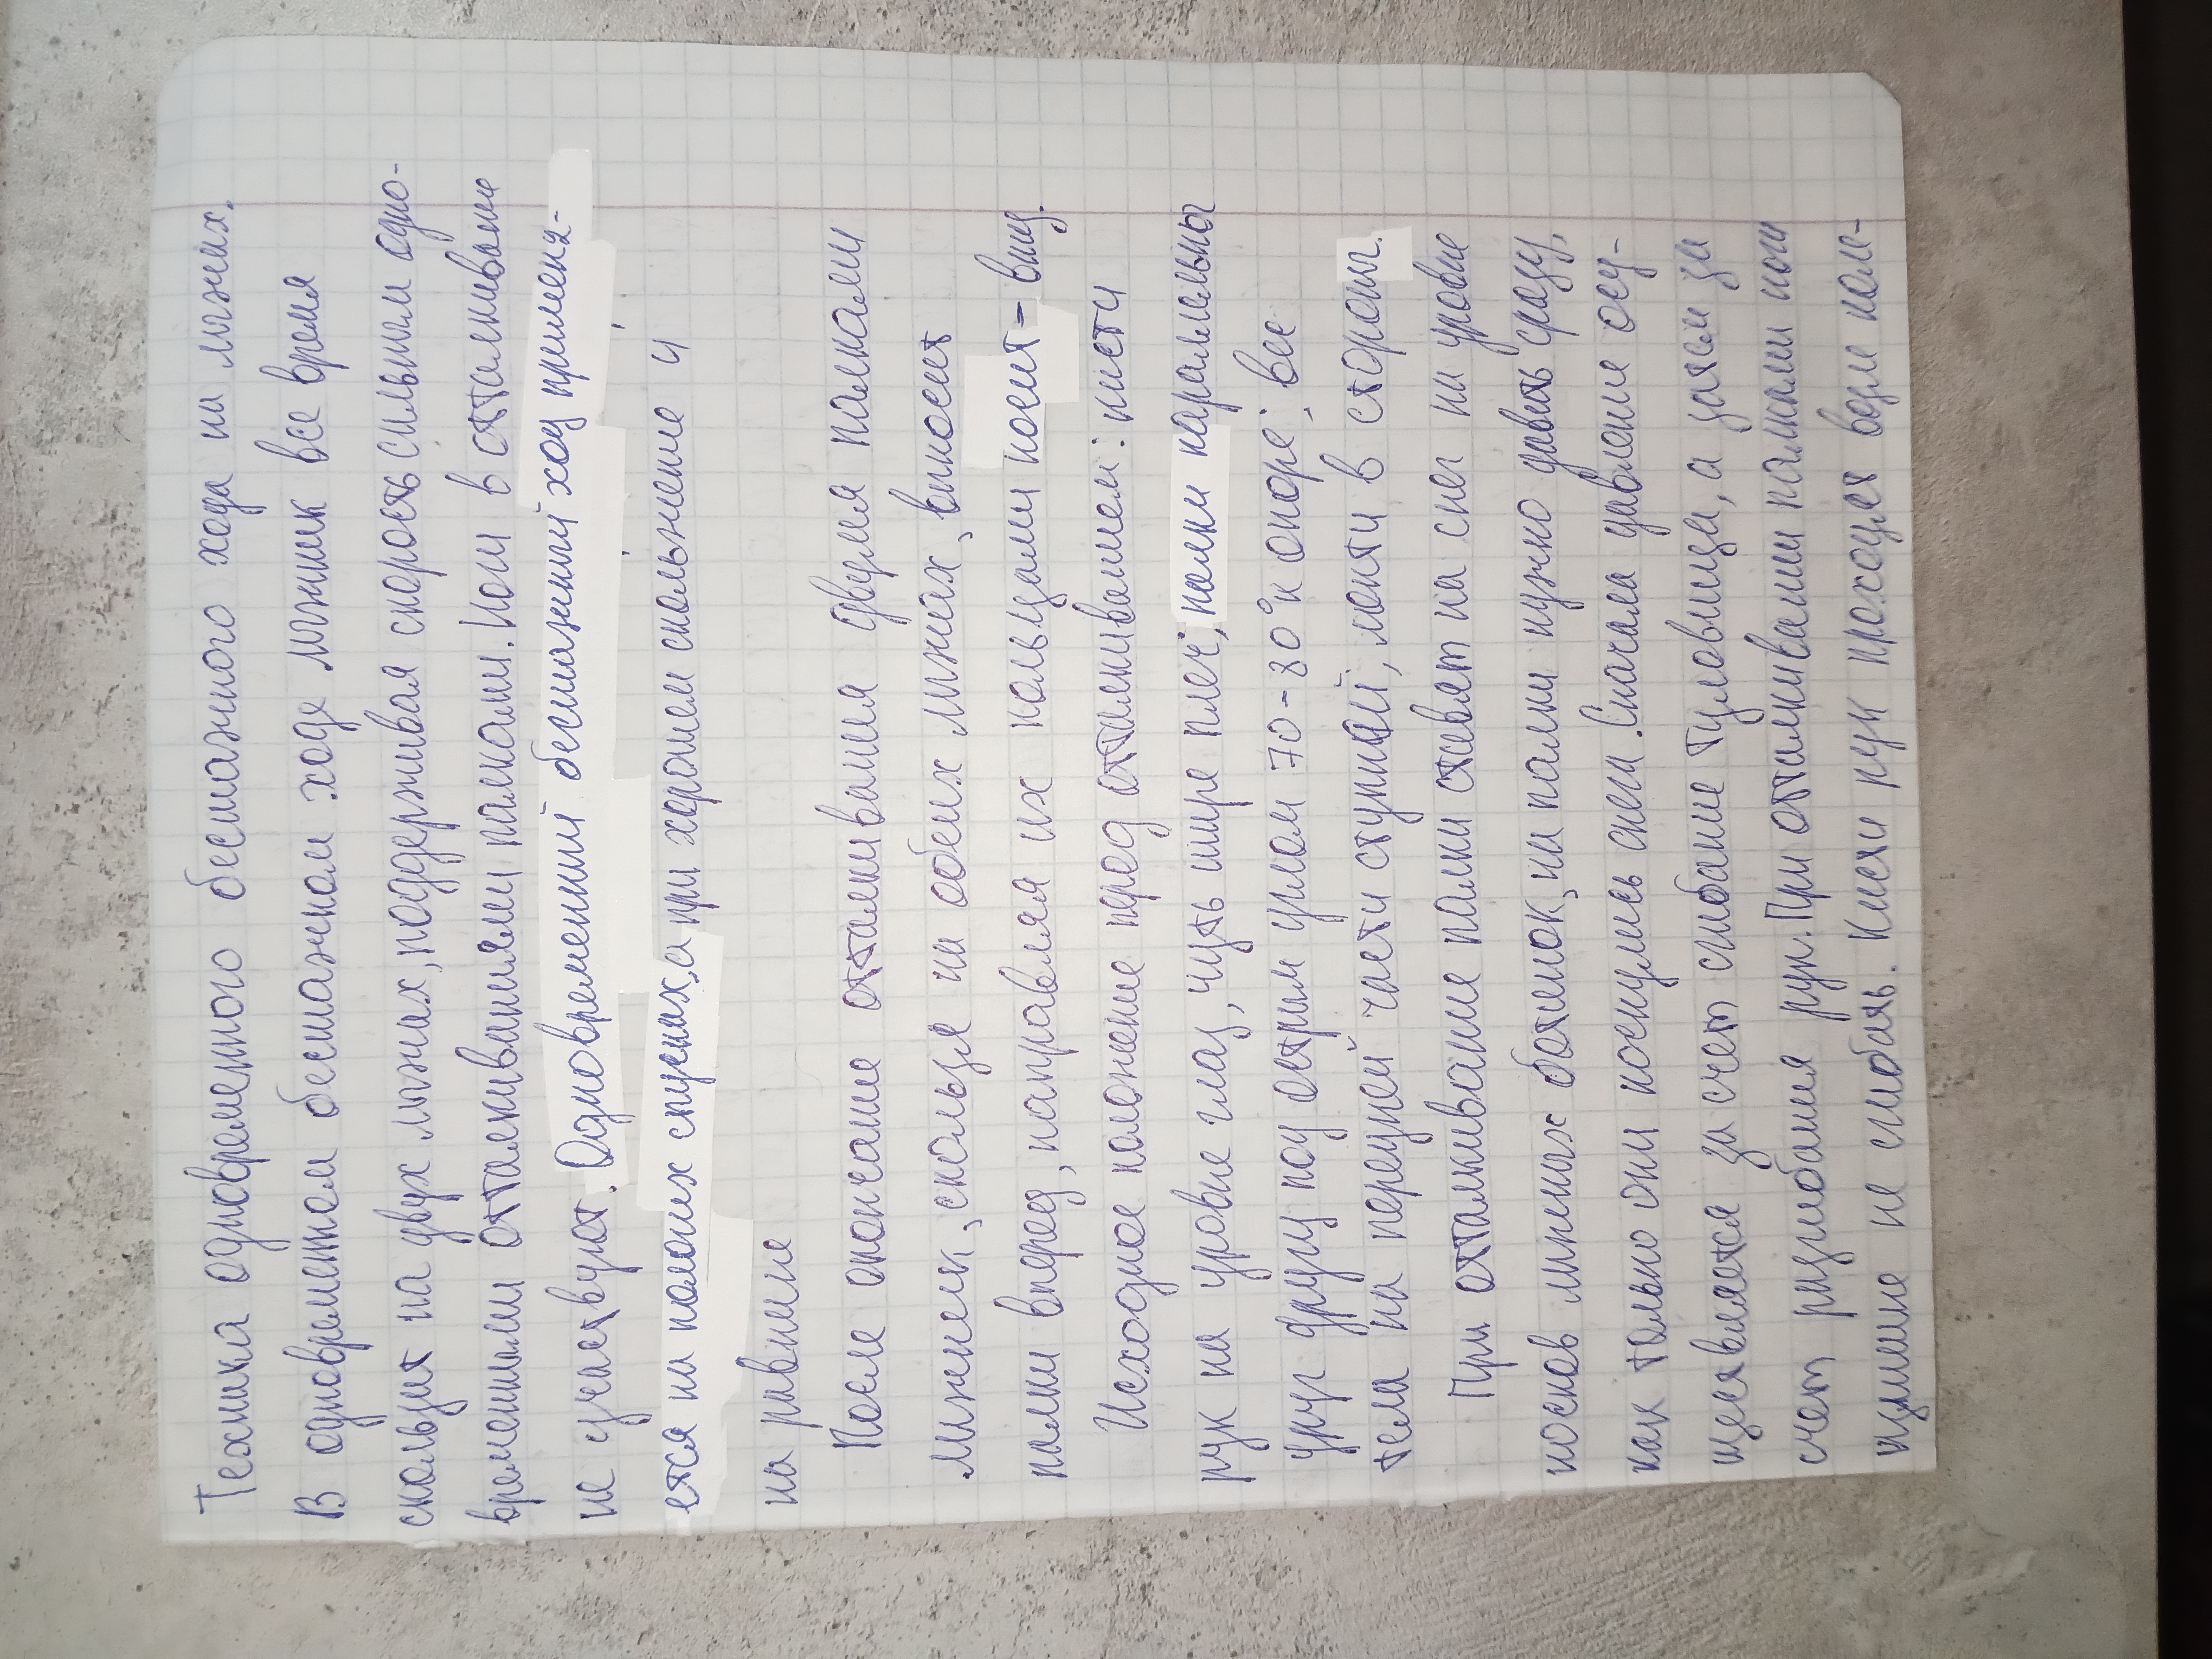 Техника одновременного бесшажного хода на лыжах.
В одновременном бесшажном ходе лыжник все время
скользит на двух лыжах, подерживая скорость сильным одно-
временными отталкиваниями палками. Ноги в отталкивание
не участвуют. Одновременный бесшажний ход применя-
ется на пологих спусках, а при хорошем скольжение и
на равнине
После окончание отталкивания двумя палками
лыжник, скользя на обеих лыжах, выносит
палки вперед, направляя их кольцами носит- вниз.
Исходное положение перед отталкиванием: кисти
рук на уровне глаз, чуть шире плеч; палки паралельны
друг другу под острим углом 70-80° к опоре; вес
тела на передней части ступней; локти в стороны.
При отталкивание палки ставят на снег на уровне
носков лыжных ботинок, на палки нужно давить сразу,
как только они коснулись снега. Сначала давление осу-
ществляется за счет сгибание туловища, а затем за
счет разгибания рук. При отталкивании палками ноги
излишне не сгибать. Кисти рук проходят возле коле-